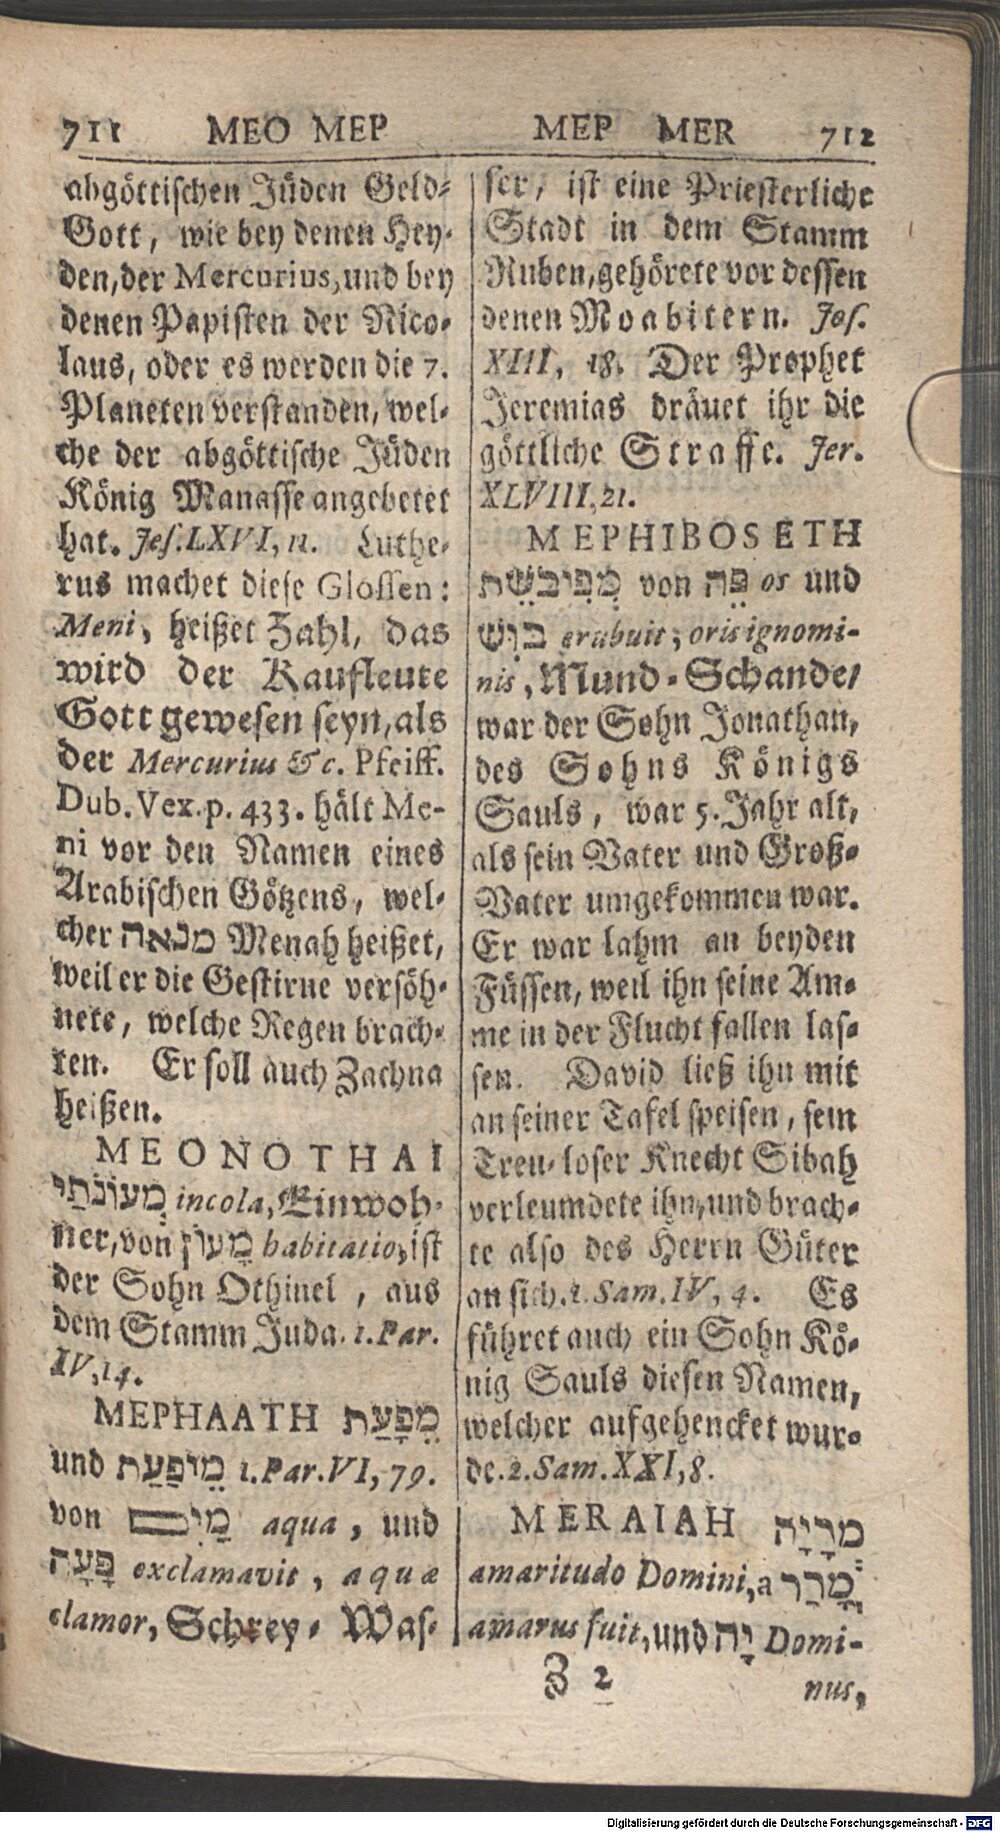 711 MEO MEP
abgöttischen Jüden Geld-
Gott, wie bey denen Hey-
den, der Mercurius, und bey
denen Papisten der Nico-
laus, oder es werden die 7.
Planeten verstanden, wel-
che der abgöttische Jüden
König Manasse angebetet
hat. Jes. LXVI, 11. Luthe-
rus machet diese Glossen:
Meni, heißet Zahl, das
wird der Kaufleute
Gott gewesen seyn, als
der Mercurius &c. Pfeiff.
Dub. Vex. p. 433. hält Me-
ni vor den Namen eines
Arabischen Götzens, wel-
cher מנאה Menah heißet,
weil er die Gestirne versöh-
nete, welche Regen brach-
ten. Er soll auch Zachna
heißen.
MEONOTHAI
מְעוֹנֹתַי incola, Einwoh-
ner, von מָעוֹן habitatio, ist
der Sohn Othinel, aus
dem Stamm Juda. 1. Par.
IV, 14.
MEPHAATH מֵפָעַת
und מֵוֹפַעַת 1. Par. VI, 79.
von מַיִם aqua, und
פָּעָה exclamavit, aquæ
clamor, Schrey-Was-
MEP MER 712
ser, ist eine Priesterliche
Stadt in dem Stamm
Ruben, gehörete vor dessen
denen Moabitern. Jos.
XIII, 18. Der Prophet
Jeremias dräuet ihr die
göttliche Straffe. Jer.
XLVIII, 21.
MEPHIBOSETH
מְפִיבֹשֶׁת von פֶּה os und
בוֹשׁ erubuit; oris ignomi-
nis, Mund-Schande/
war der Sohn Jonathan,
des Sohns Königs
Sauls, war 5. Jahr alt,
als sein Vater und Groß-
Vater umgekommen war.
Er war lahm an beyden
Füssen, weil ihn seine Am-
me in der Flucht fallen las-
sen. David ließ ihn mit
an seiner Tafel speisen, sein
Treu-loser Knecht Sibah
verleumdete ihn, und brach-
te also des Herrn Güter
an sich. 2. Sam. IV, 4. Es
führet auch ein Sohn Kö-
nig Sauls diesen Namen,
welcher aufgehencket wur-
de. 2. Sam. XXI, 8.
MERAIAH מְרָיָה
amaritudo Domini, a מָרַר
amarus fuit, und יָה Domi-
Z 2
nus,
Digitalisierung gefördert durch die Deutsche Forschungsgemeinschaft - DFG